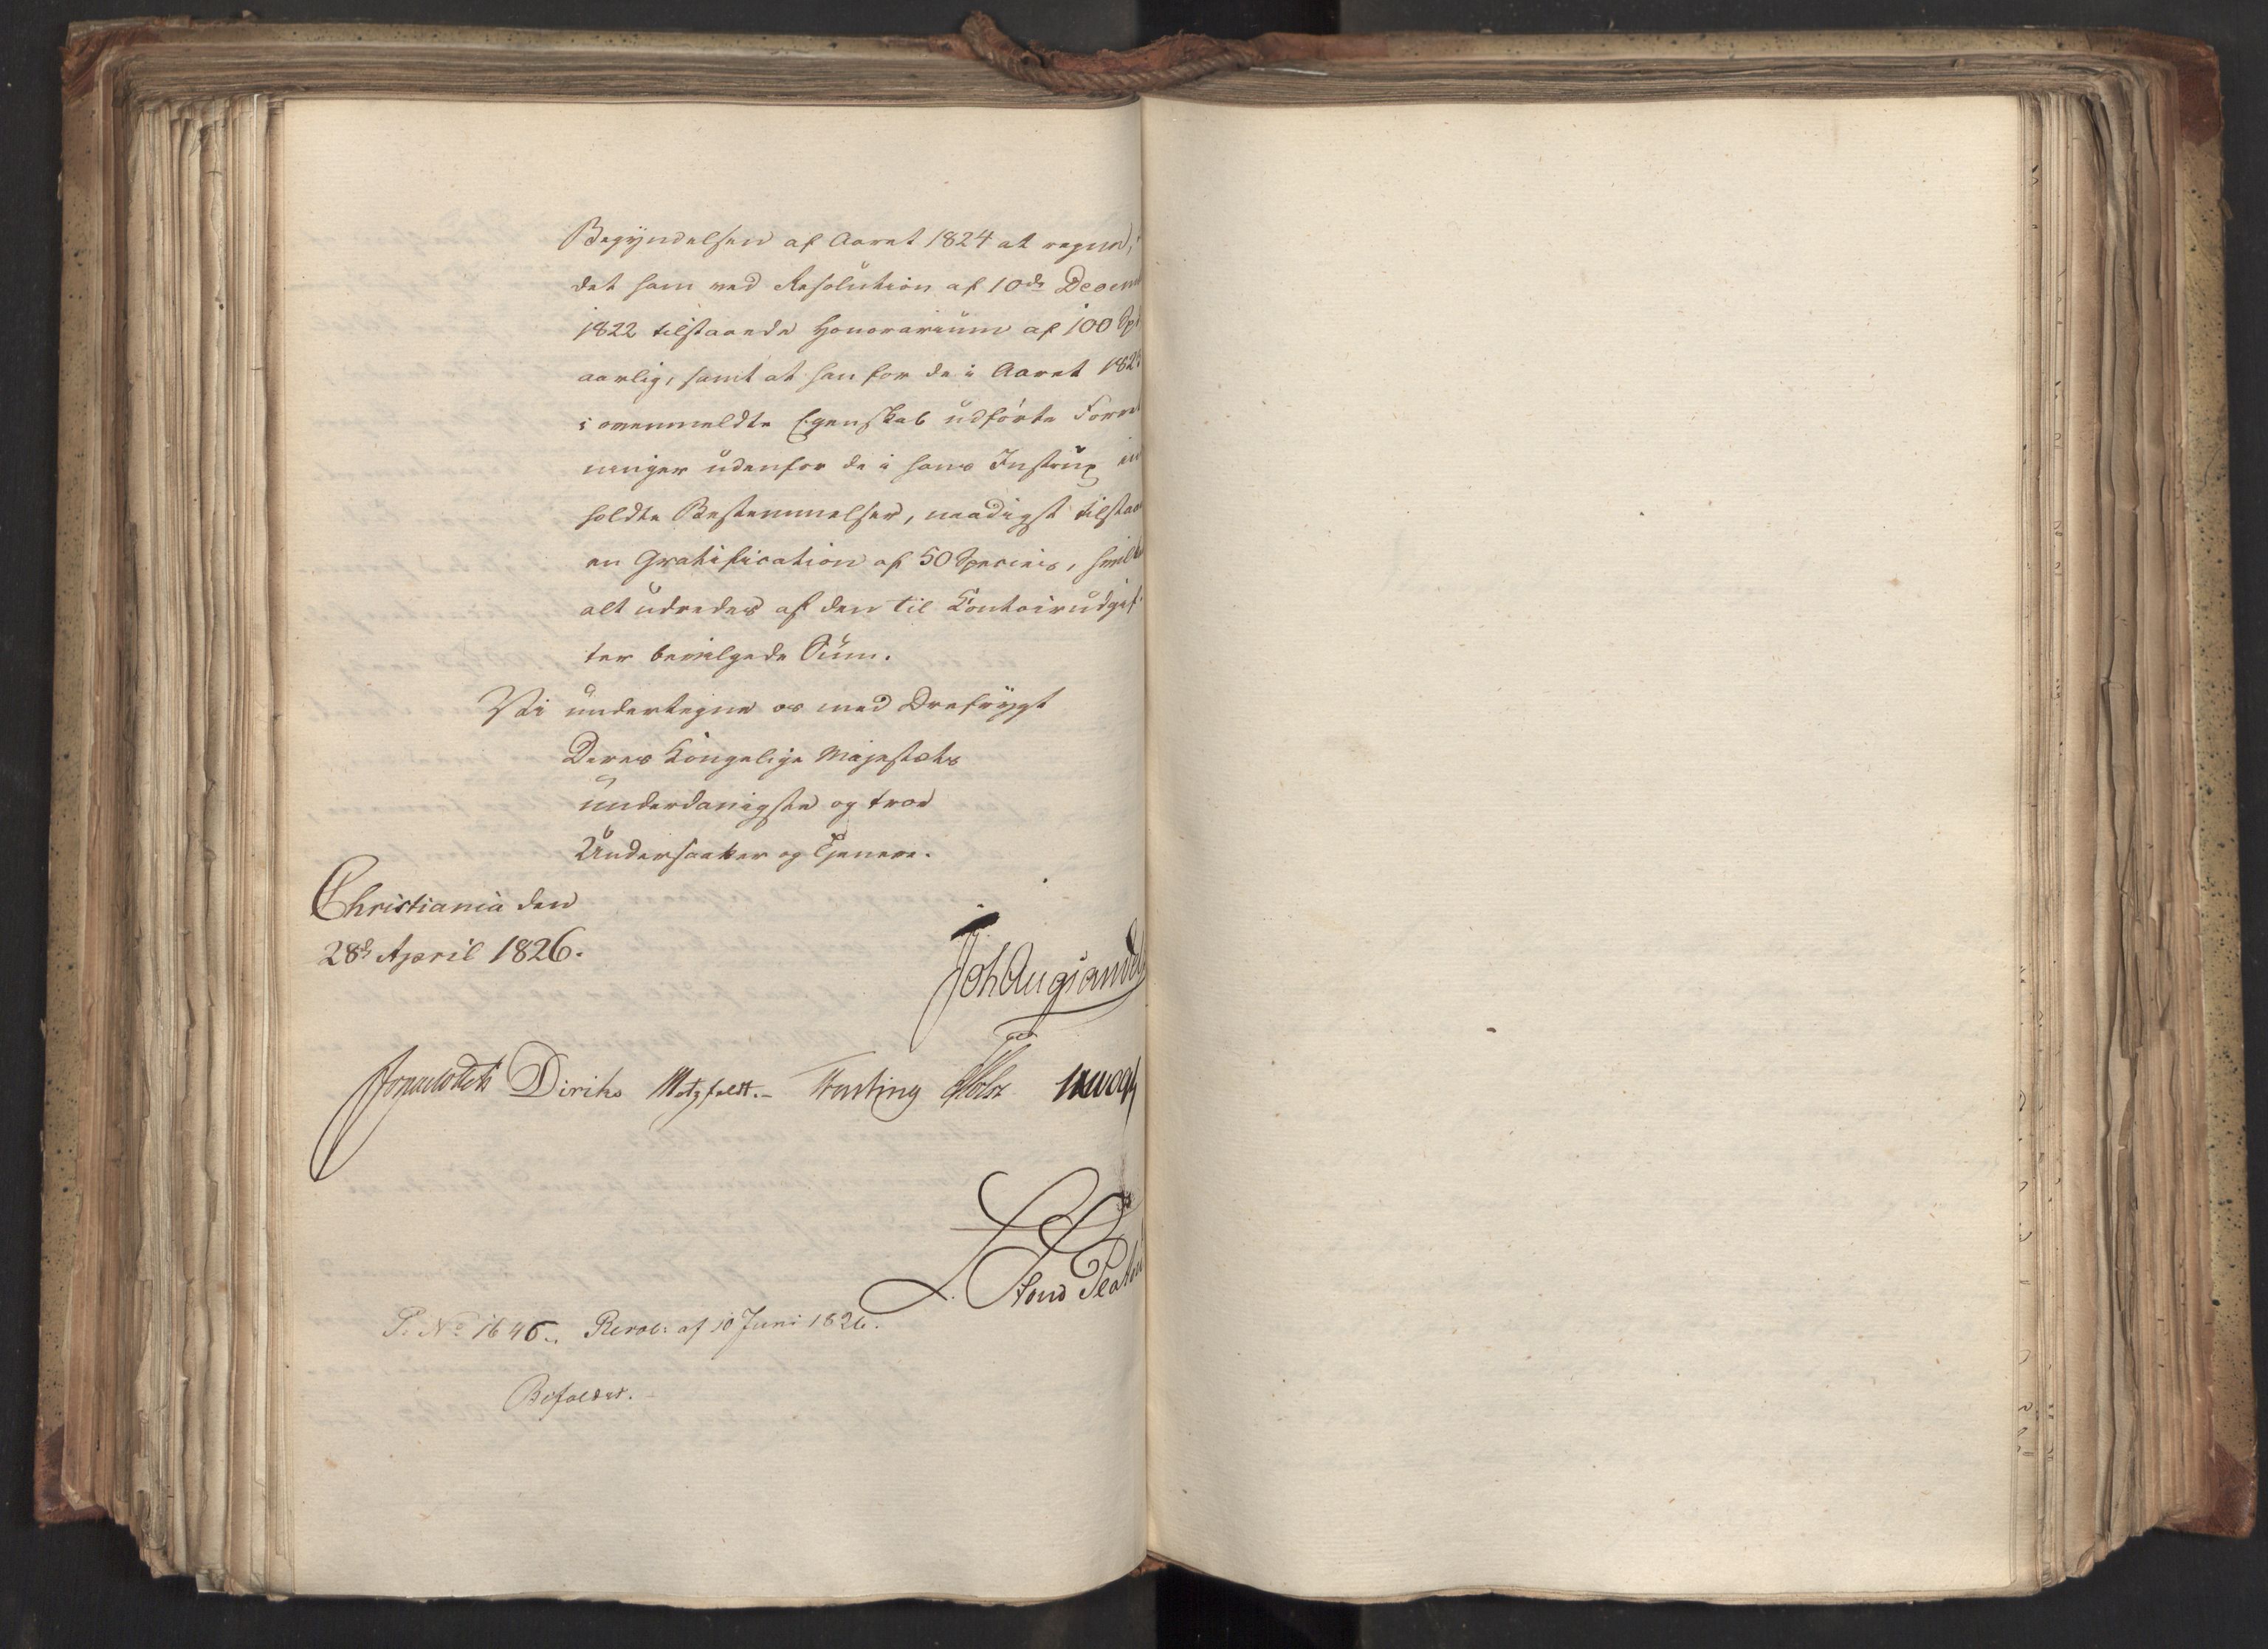 Begyndelsen af Aaret 1824 at regne,
det ham ved Resolution af 10de Decem
1822 tilstaaede Honorarium af 100 Sp
aarlig, samt at han for de i Aaret 182
i ovenmeldte Egenskab udførte Forret
ninger udenfor de i hans Instrux in
holdte Bestemmelser, naadigst tilstaa
en Gratification af 50 Species, hvilk
alt udredes af den til Contoirudgif
ter bevilgede Sum.
Vi undertegne os med Ærefrygt
Deres Kongelige Majestæts
underdanigste og troe
Undersaatter og Tjenere.
Christiania den
28de April 1826.
Joh Aug Sand
Diriks Motzfeldt. Fasting Holst
P. No 1646. Resol: af 10 Juni 1826.
Bifaldet.